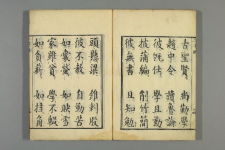 古聖賢 尚勤學
趙中令 讀魯論
彼既仕 學且勤
披蒲編 削竹簡
彼無書 且知勉
頭懸梁 錐刺股
彼不教 自勤苦
如囊螢 如映雪
家雖貧 學不輟
如負薪 如挂角